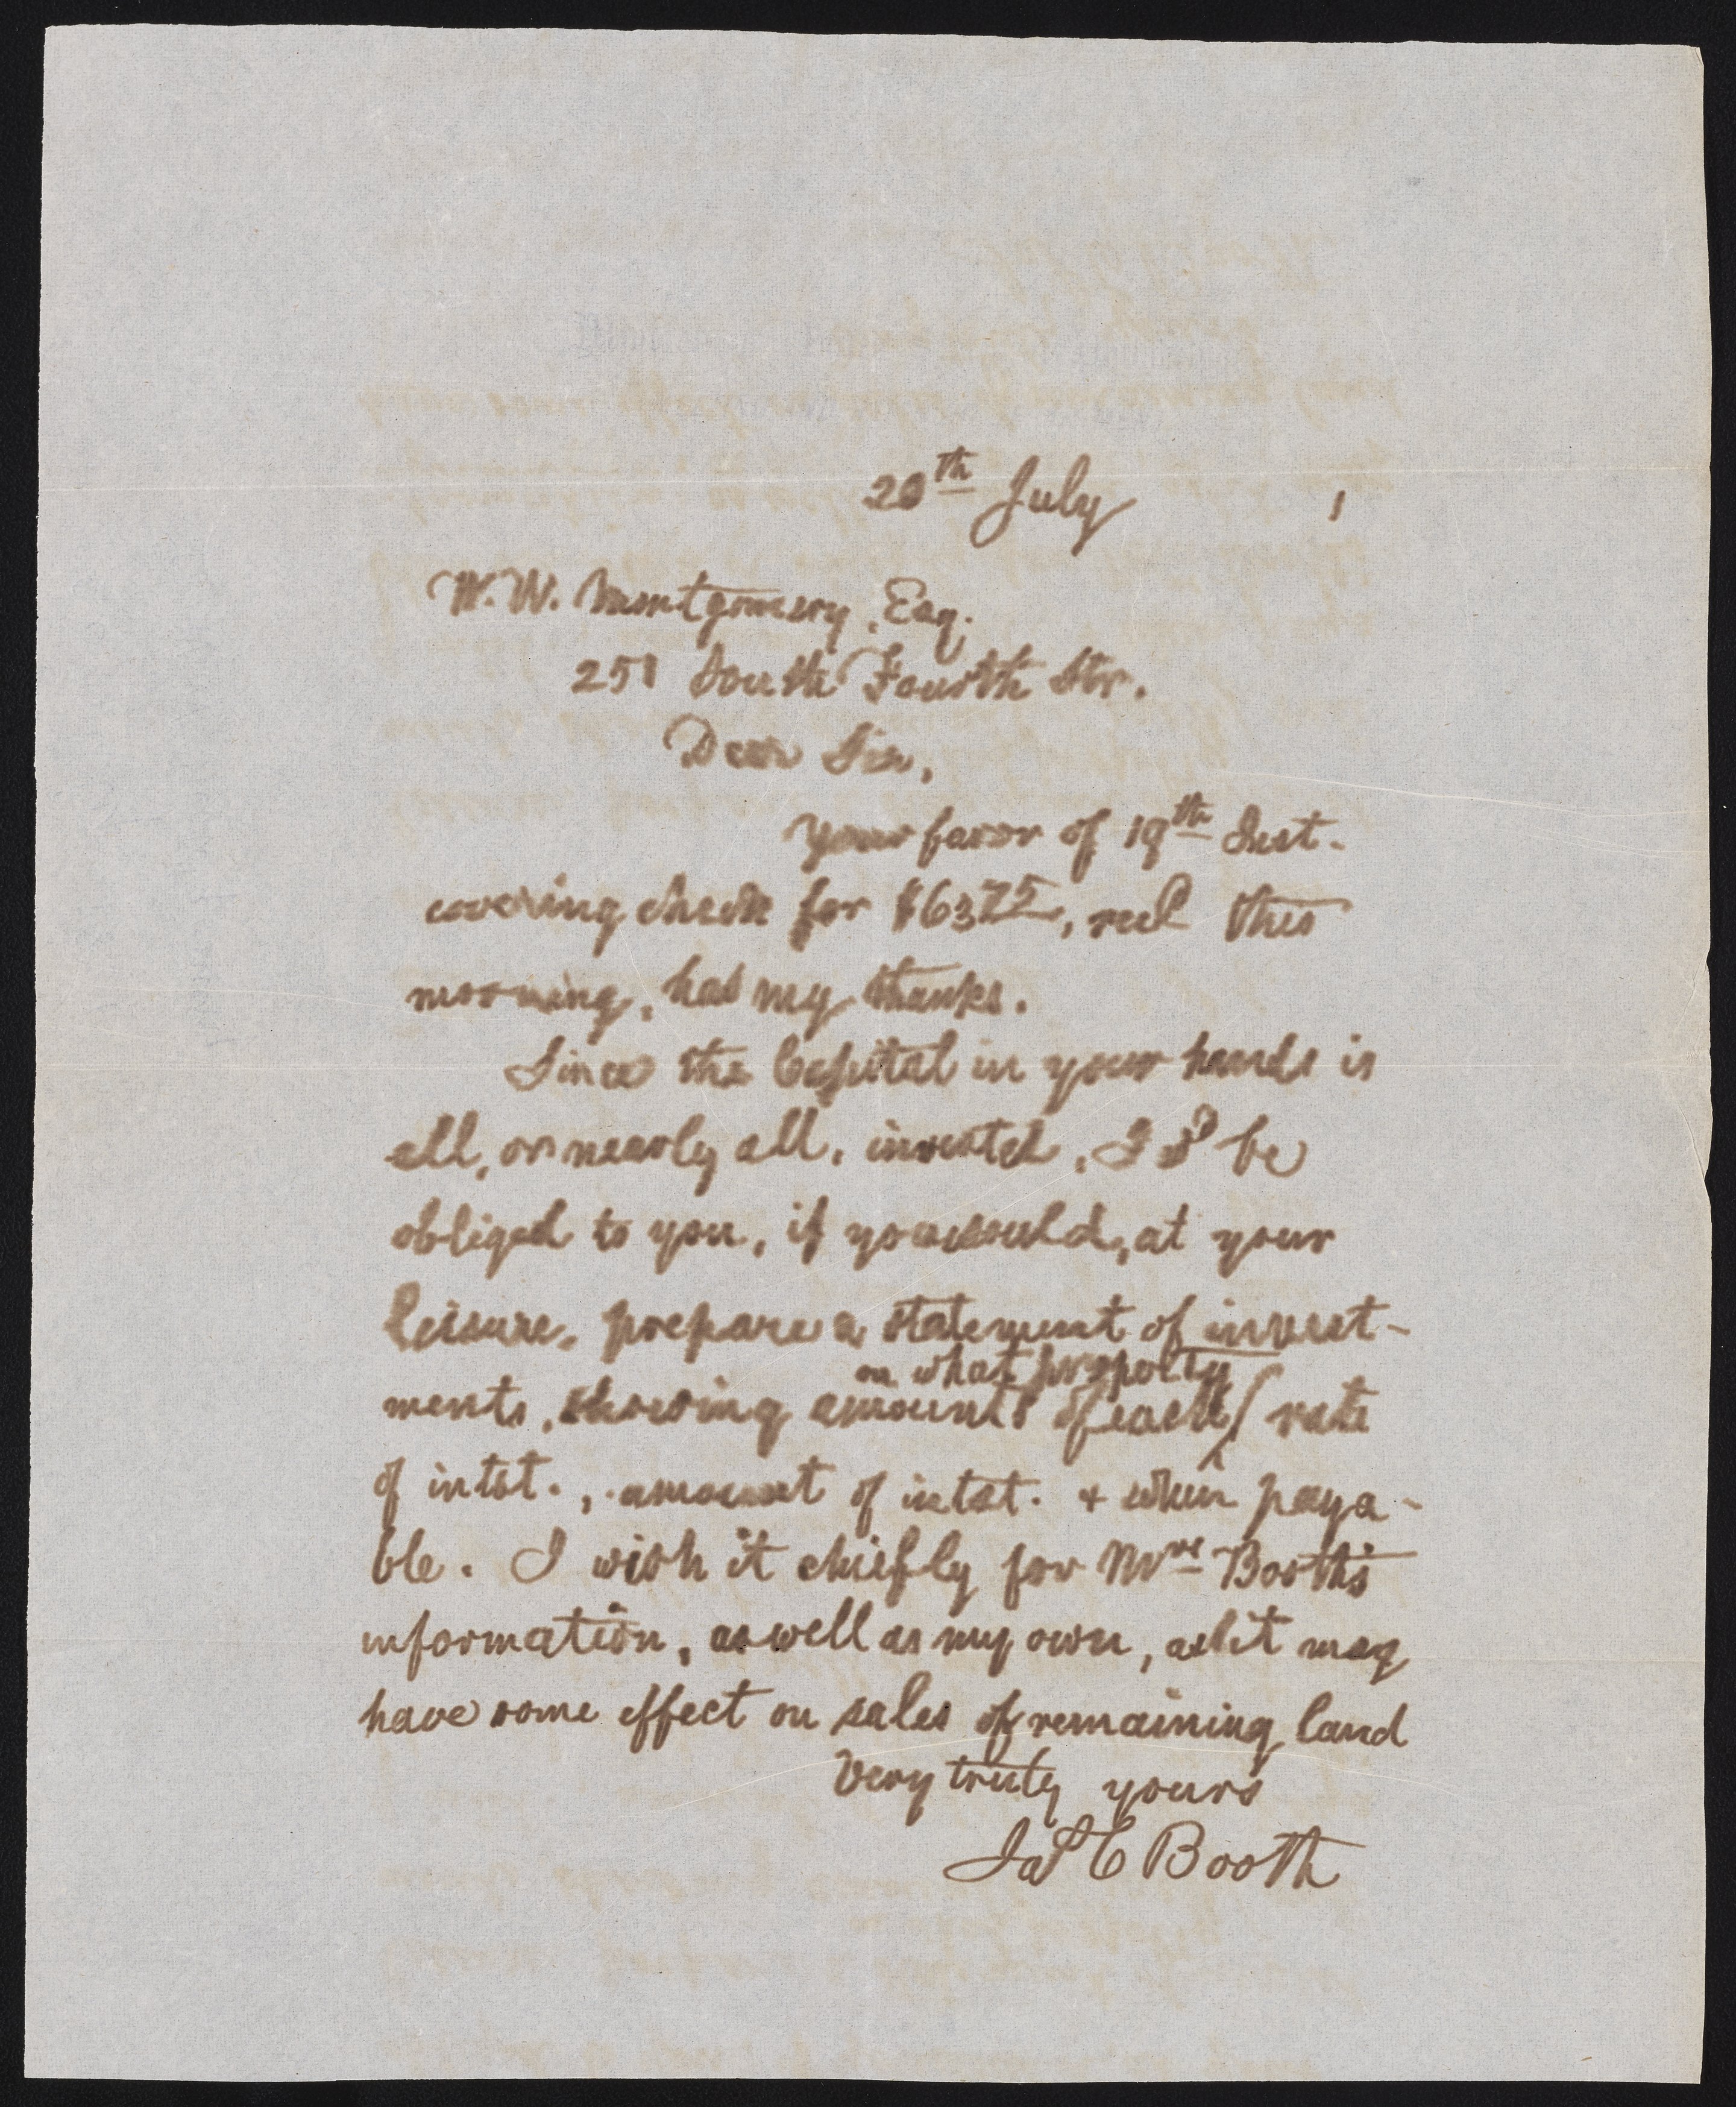 20th July 1
W. W. Montgomery, Esq.
251 South Fourth Str.
Dear Sir,
Your favor of 19th Inst.
covering check for $63 75, recd this
morning, has my thanks.
Since the Capital in your hands is
all, or nearly all, invested, I sd be
obliged to you, if you would, at your
leisure, prepare a statement of invest-
on what property
ments, showing amounts of each rate
of intst., amount of intst. + when paya-
ble. I wish it chiefly for Mrs Booth's
information, as well as my own, as it may
have some effect on sales of remaining land
Very truly yours
Jas C Booth